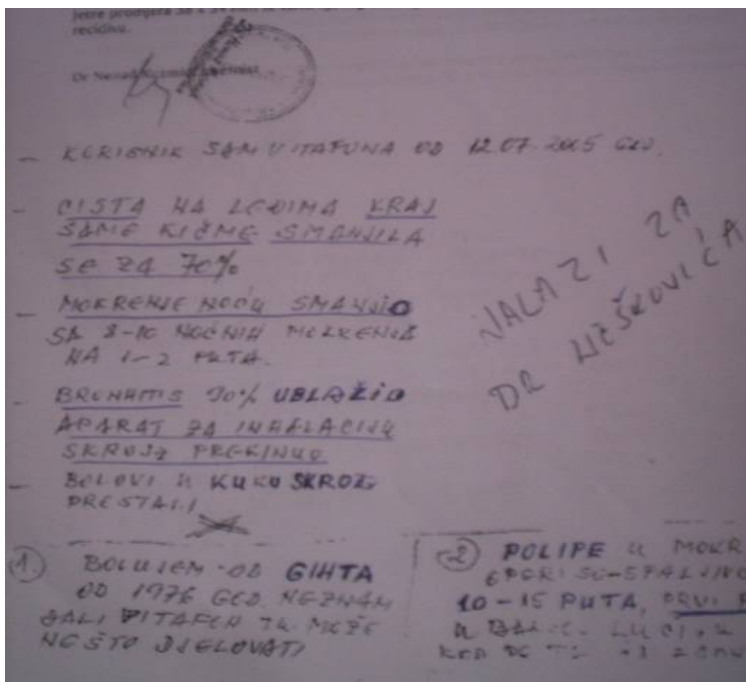 recidiva.
Dr Nenad
- KORISNIK SAM VITAFONA OD 12.07.2005 GOD.
- CISTA NA LEĐIMA KRAJ
SAME KIČME SMANJILA
SE ZA 70%
- MOKRENJE NOĆU SMANJIO
SA 8-10 NOĆNIH MOKRENJA
NA 1-2 PUTA.
- BRONHITIS 90% UBLAŽIO
APARAT ZA INHALACIJU
SKROJZ PREKINUO
- BOLOVI U KUKU SKROZ
PRESTALI
NALAZI ZA
DR
1. BOLUJEM OD GIHTA
OD 1976 GOD. NEZNAM
DALI VITAFON TU MOŽE
NEŠTO DJELOVATI
2 POLIPE U MOKR
10-15 PUTA, PRVI